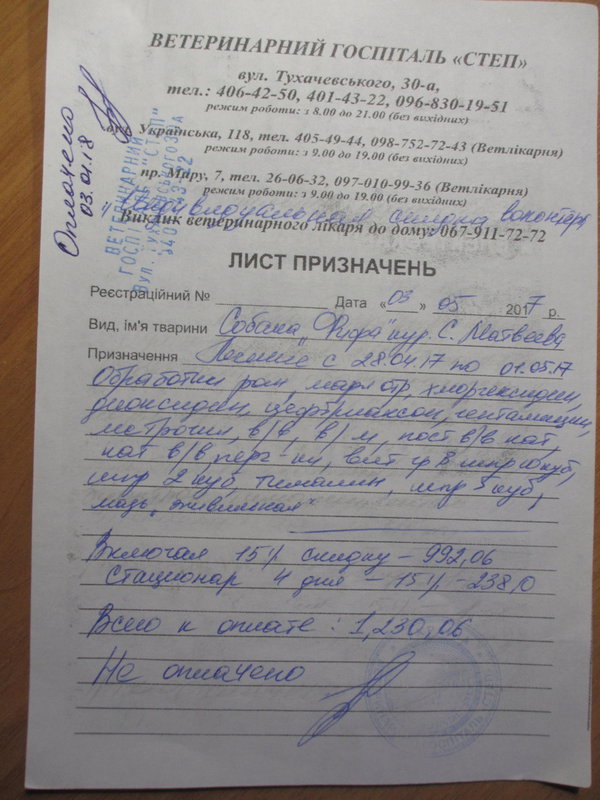 ВЕТЕРИНАРНИЙ ГОСПІТАЛЬ «СТЕП»
вул. Тухачевського, 30-а,
тел.: 406-42-50, 401-43-22, 096-830-19-51
режим роботи: з 8.00 до 21.00 (без вихідних)
Українська, 118, тел. 405-49-44, 098-752-72-43 (Ветлікарня)
режим роботи: з 9.00 до 19.00 (без вихідних)
пр. Миру, 7, тел. 26-06-32, 097-010-99-36 (Ветлікарня)
режим роботи: з 9.00 до 19.00 (без вихідних)
скидка волонтера
Виклик ветеринарного лікаря до дому: 067-911-72-72
Оплачено
03.01.18
ВЕТЕРИНАРНИЙ
ГОСПІТАЛЬ "СТЕП"
ЛИСТ ПРИЗНАЧЕНЬ
Реєстраційний № Дата «03» 05 2017 р.
Вид, ім'я тварини Собака "Флора" кур. С. Матвеева
Призначення Лечение с 28.04.17 по 01.05.17
Обработки ран, марл отр, хлоргексидин,
диоксидин, цефтриаксон, гентамицин,
в/в, в/м, пост в/в кат,
кат в/в, шпр 10 куб,
шпр 2 куб, шпр 5 куб,
мазь "живильная"
Включая 15% скидку – 992,06
Стационар 4 дня – 15% – 238,0
Всего к оплате : 1,230,06
Не оплачено